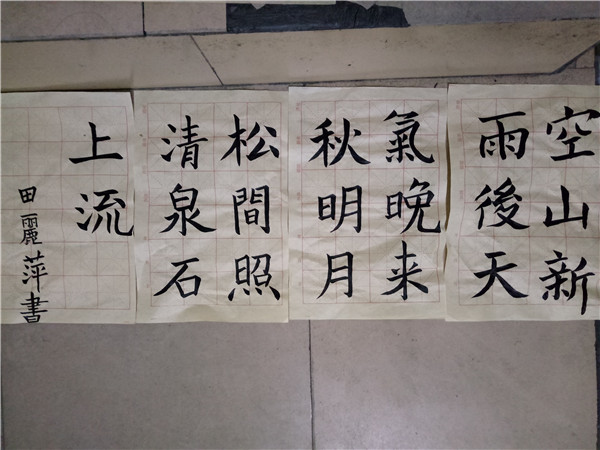 空山新
雨後天
氣晚来
秋明月
松間照
清泉石
上流
田麗萍書